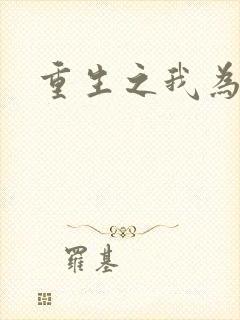 重生之我為
羅基